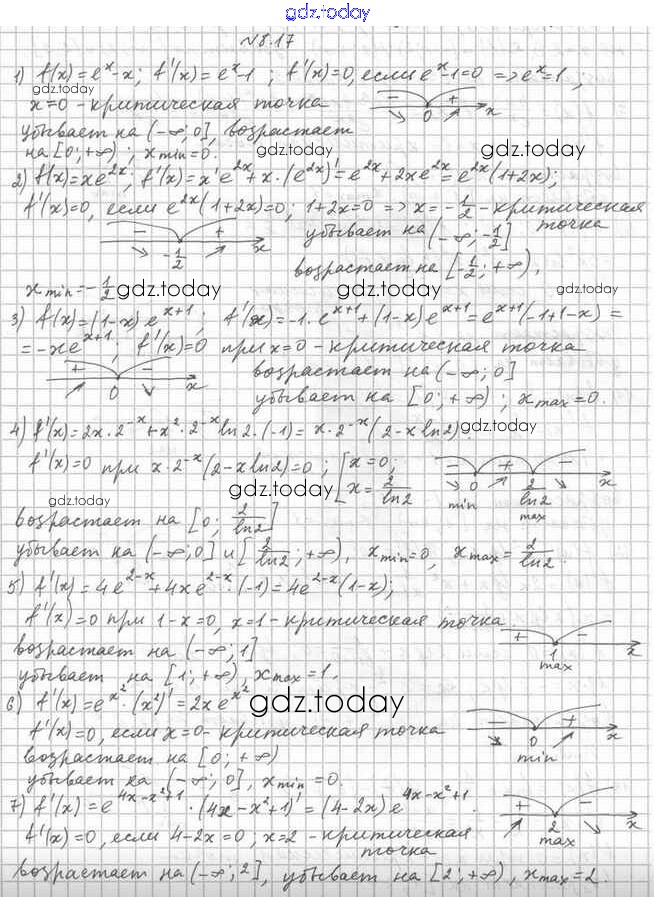 gdz.today
№8.17
1) f(x)=eˣ-x; f'(x)=eˣ-1; f'(x)=0, если eˣ-1=0 => eˣ=1;
gdz.today
x=0 - критическая точка
- + 0 x
убывает на (-∞;0], возрастает
на [0;+∞); x min=0.
gdz.today gdz.today
2) f(x)=xe²ˣ; f'(x)=x'e²ˣ+x·(e²ˣ)'=e²ˣ+2xe²ˣ=e²ˣ(1+2x);
f'(x)=0, если e²ˣ(1+2x)=0; 1+2x=0 => x=-1/2 - критическая
точка
- + -1/2 x
убывает на (-∞;-1/2]
возрастает на [-1/2;+∞),
x min=-1/2
gdz.today gdz.today gdz.today
3) f(x)=(1-x)eˣ⁺¹; f'(x)=-1·eˣ⁺¹+(1-x)eˣ⁺¹=eˣ⁺¹(-1+1-x)=
=-xeˣ⁺¹; f'(x)=0 при x=0 - критическая точка
+ - 0 x
возрастает на (-∞;0]
убывает на [0;+∞); x max=0.
4) f'(x)=2x·2⁻ˣ+x²·2⁻ˣln2·(-1)=x·2⁻ˣ(2-xln2).
gdz.today
f'(x)=0 при x·2⁻ˣ(2-xln2)=0; [x=0; x=2/ln2
- + - 0 2/ln2 x
min max
gdz.today gdz.today
возрастает на [0; 2/ln2]
убывает на (-∞;0] и [2/ln2;+∞), x min=0, x max=2/ln2.
5) f'(x)=4e²⁻ˣ+4xe²⁻ˣ·(-1)=4e²⁻ˣ(1-x);
f'(x)=0 при 1-x=0, x=1 - критическая точка.
+ - 1 x
max
возрастает на (-∞;1]
убывает на [1;+∞), x max=1.
6) f'(x)=e^x²·(x²)'=2xe^x²
gdz.today
f'(x)=0, если x=0 - критическая точка
- + 0 x
min
возрастает на [0;+∞)
убывает на (-∞;0], x min=0.
7) f'(x)=e^4x-x²+1·(4x-x²+1)'=(4-2x)e^4x-x²+1.
f'(x)=0, если 4-2x=0, x=2 - критическая
точка
+ - 2 x
max
возрастает на (-∞;2], убывает на [2;+∞), x max=2.
gdz.today